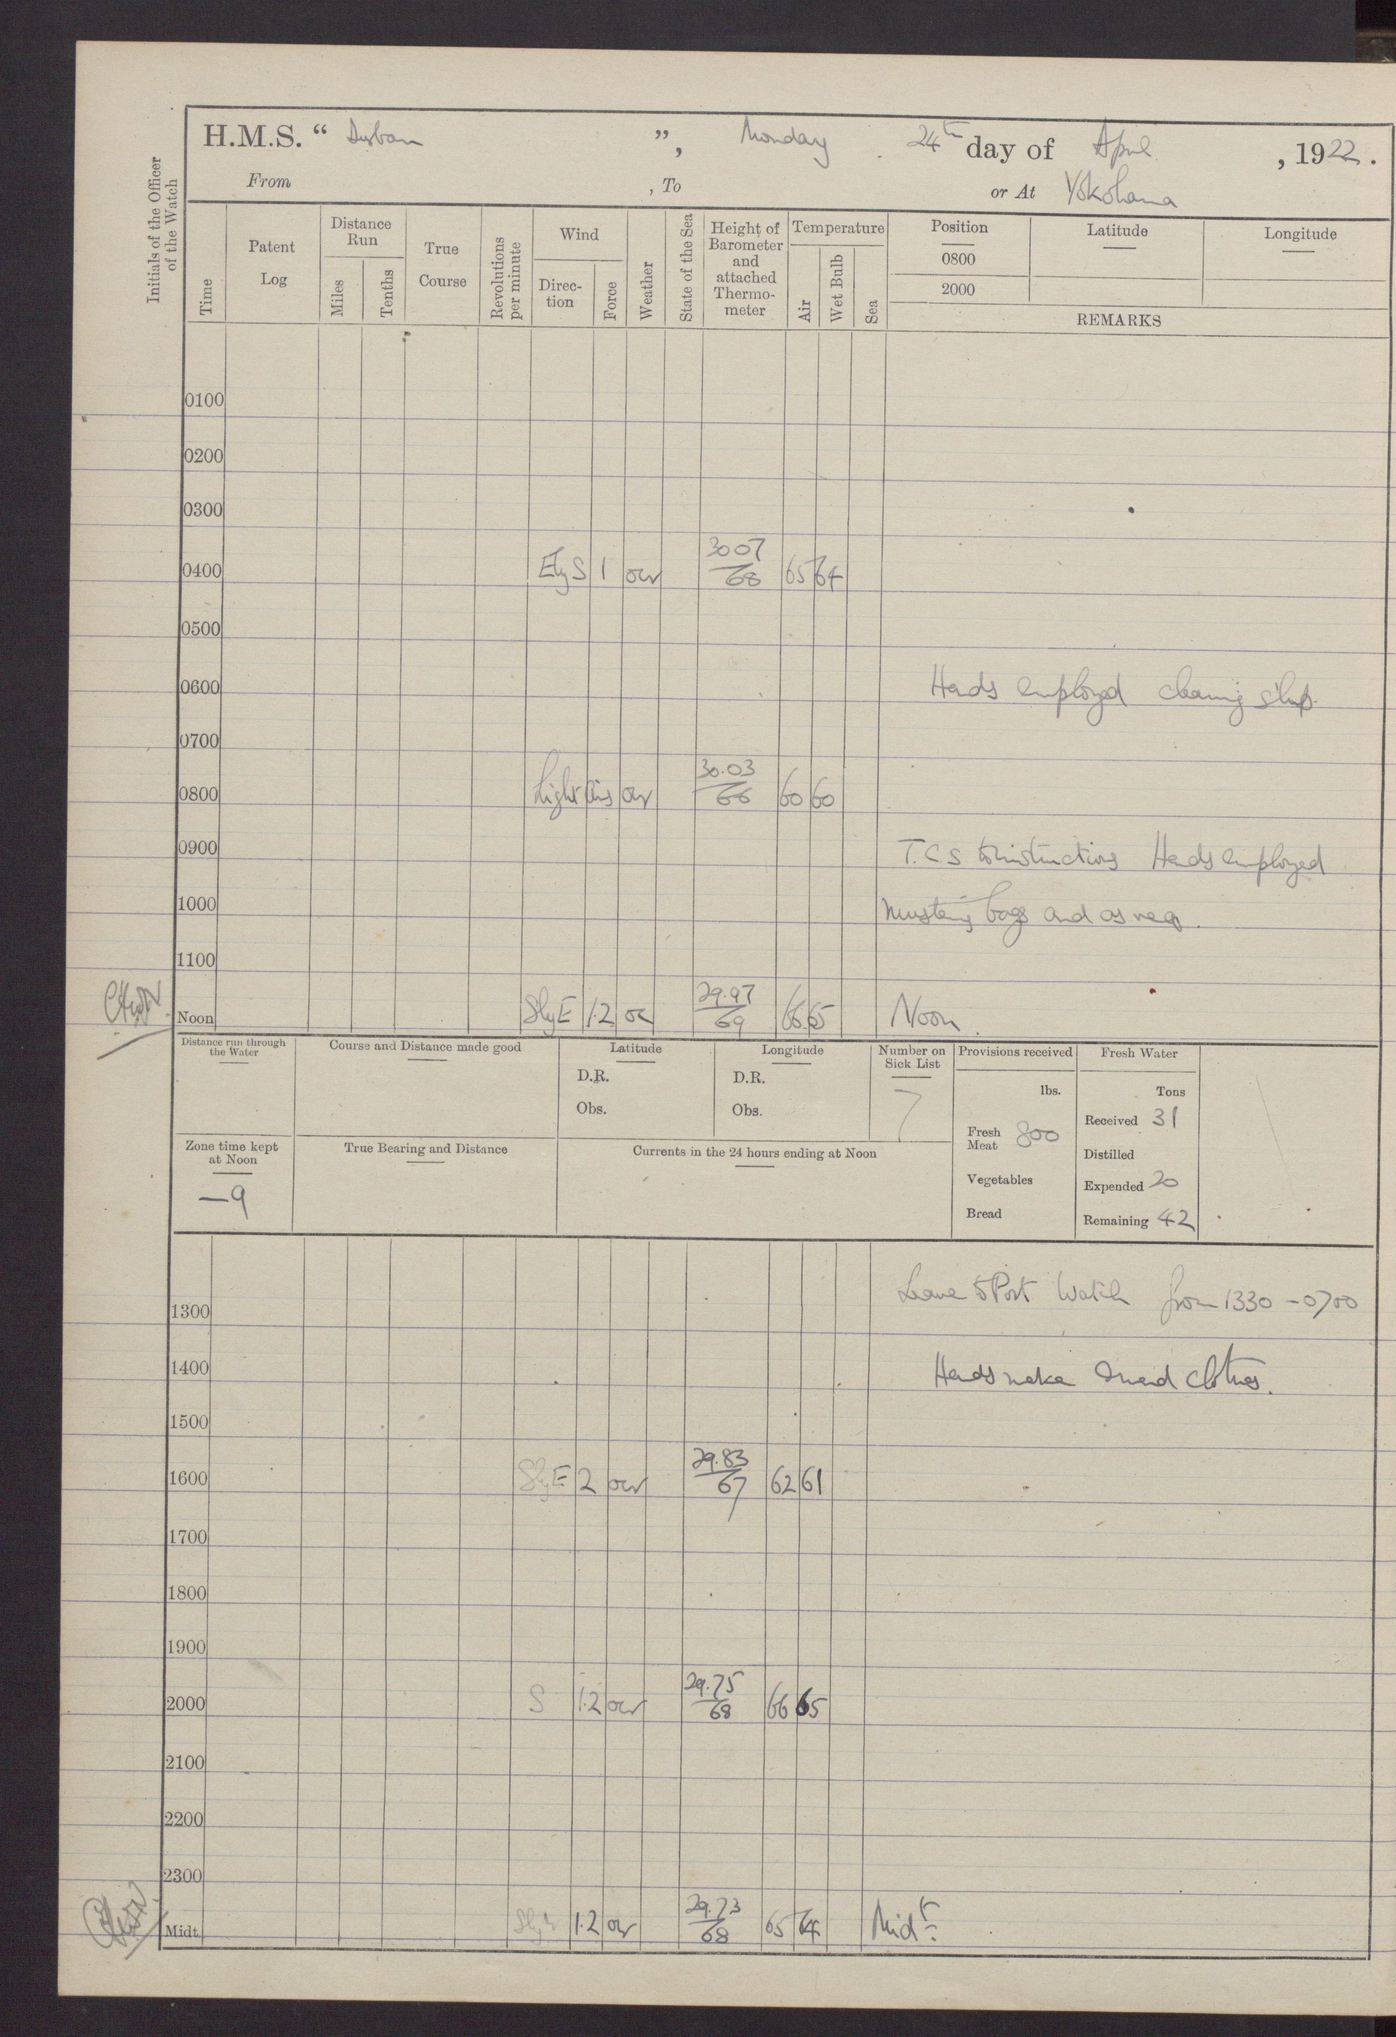 H.M.S. “ Durban ”, Monday 24th day of April, 1922.
From , To or At Yokohama
Initials of the Officer of the Watch
Time
Patent Log
Distance Run
Miles
Tenths
True Course
Revolutions per minute
Wind
Direction
Force
Weather
State of the Sea
Height of Barometer and attached Thermometer
Temperature
Air
Wet Bulb
Sea
Position
0800
2000
Latitude
Longitude
REMARKS
0100
0200
0300
0400 EbyS 1 our 3007/68 65 64
0500
0600 Hands employed cleaning ship.
0700
0800 Light airs our 30.03/66 60 60
0900 T.C.S to instructions Hands employed
1000 mustering bags and as req.
1100
Noon SbyE 1.2 oc 29.97/69 66 65 Noon.
Distance run through the Water
Course and Distance made good
Latitude
D.R.
Obs.
Longitude
D.R.
Obs.
Number on Sick List
7
Provisions received
lbs.
Fresh Meat 800
Vegetables
Bread
Fresh Water
Tons
Received 31
Distilled
Expended 20
Remaining 42
Zone time kept at Noon
—9
True Bearing and Distance
Currents in the 24 hours ending at Noon
1300 Leave to Port Watch from 1330 - 0700
1400 Hands make & mend clothes.
1500
1600 SbyE 2 our 29.83/67 62 61
1700
1800
1900
2000 S 1.2 our 29.75/68 66 65
2100
2200
2300
Midt. 1.2 our 29.73/68 65 64 Midt